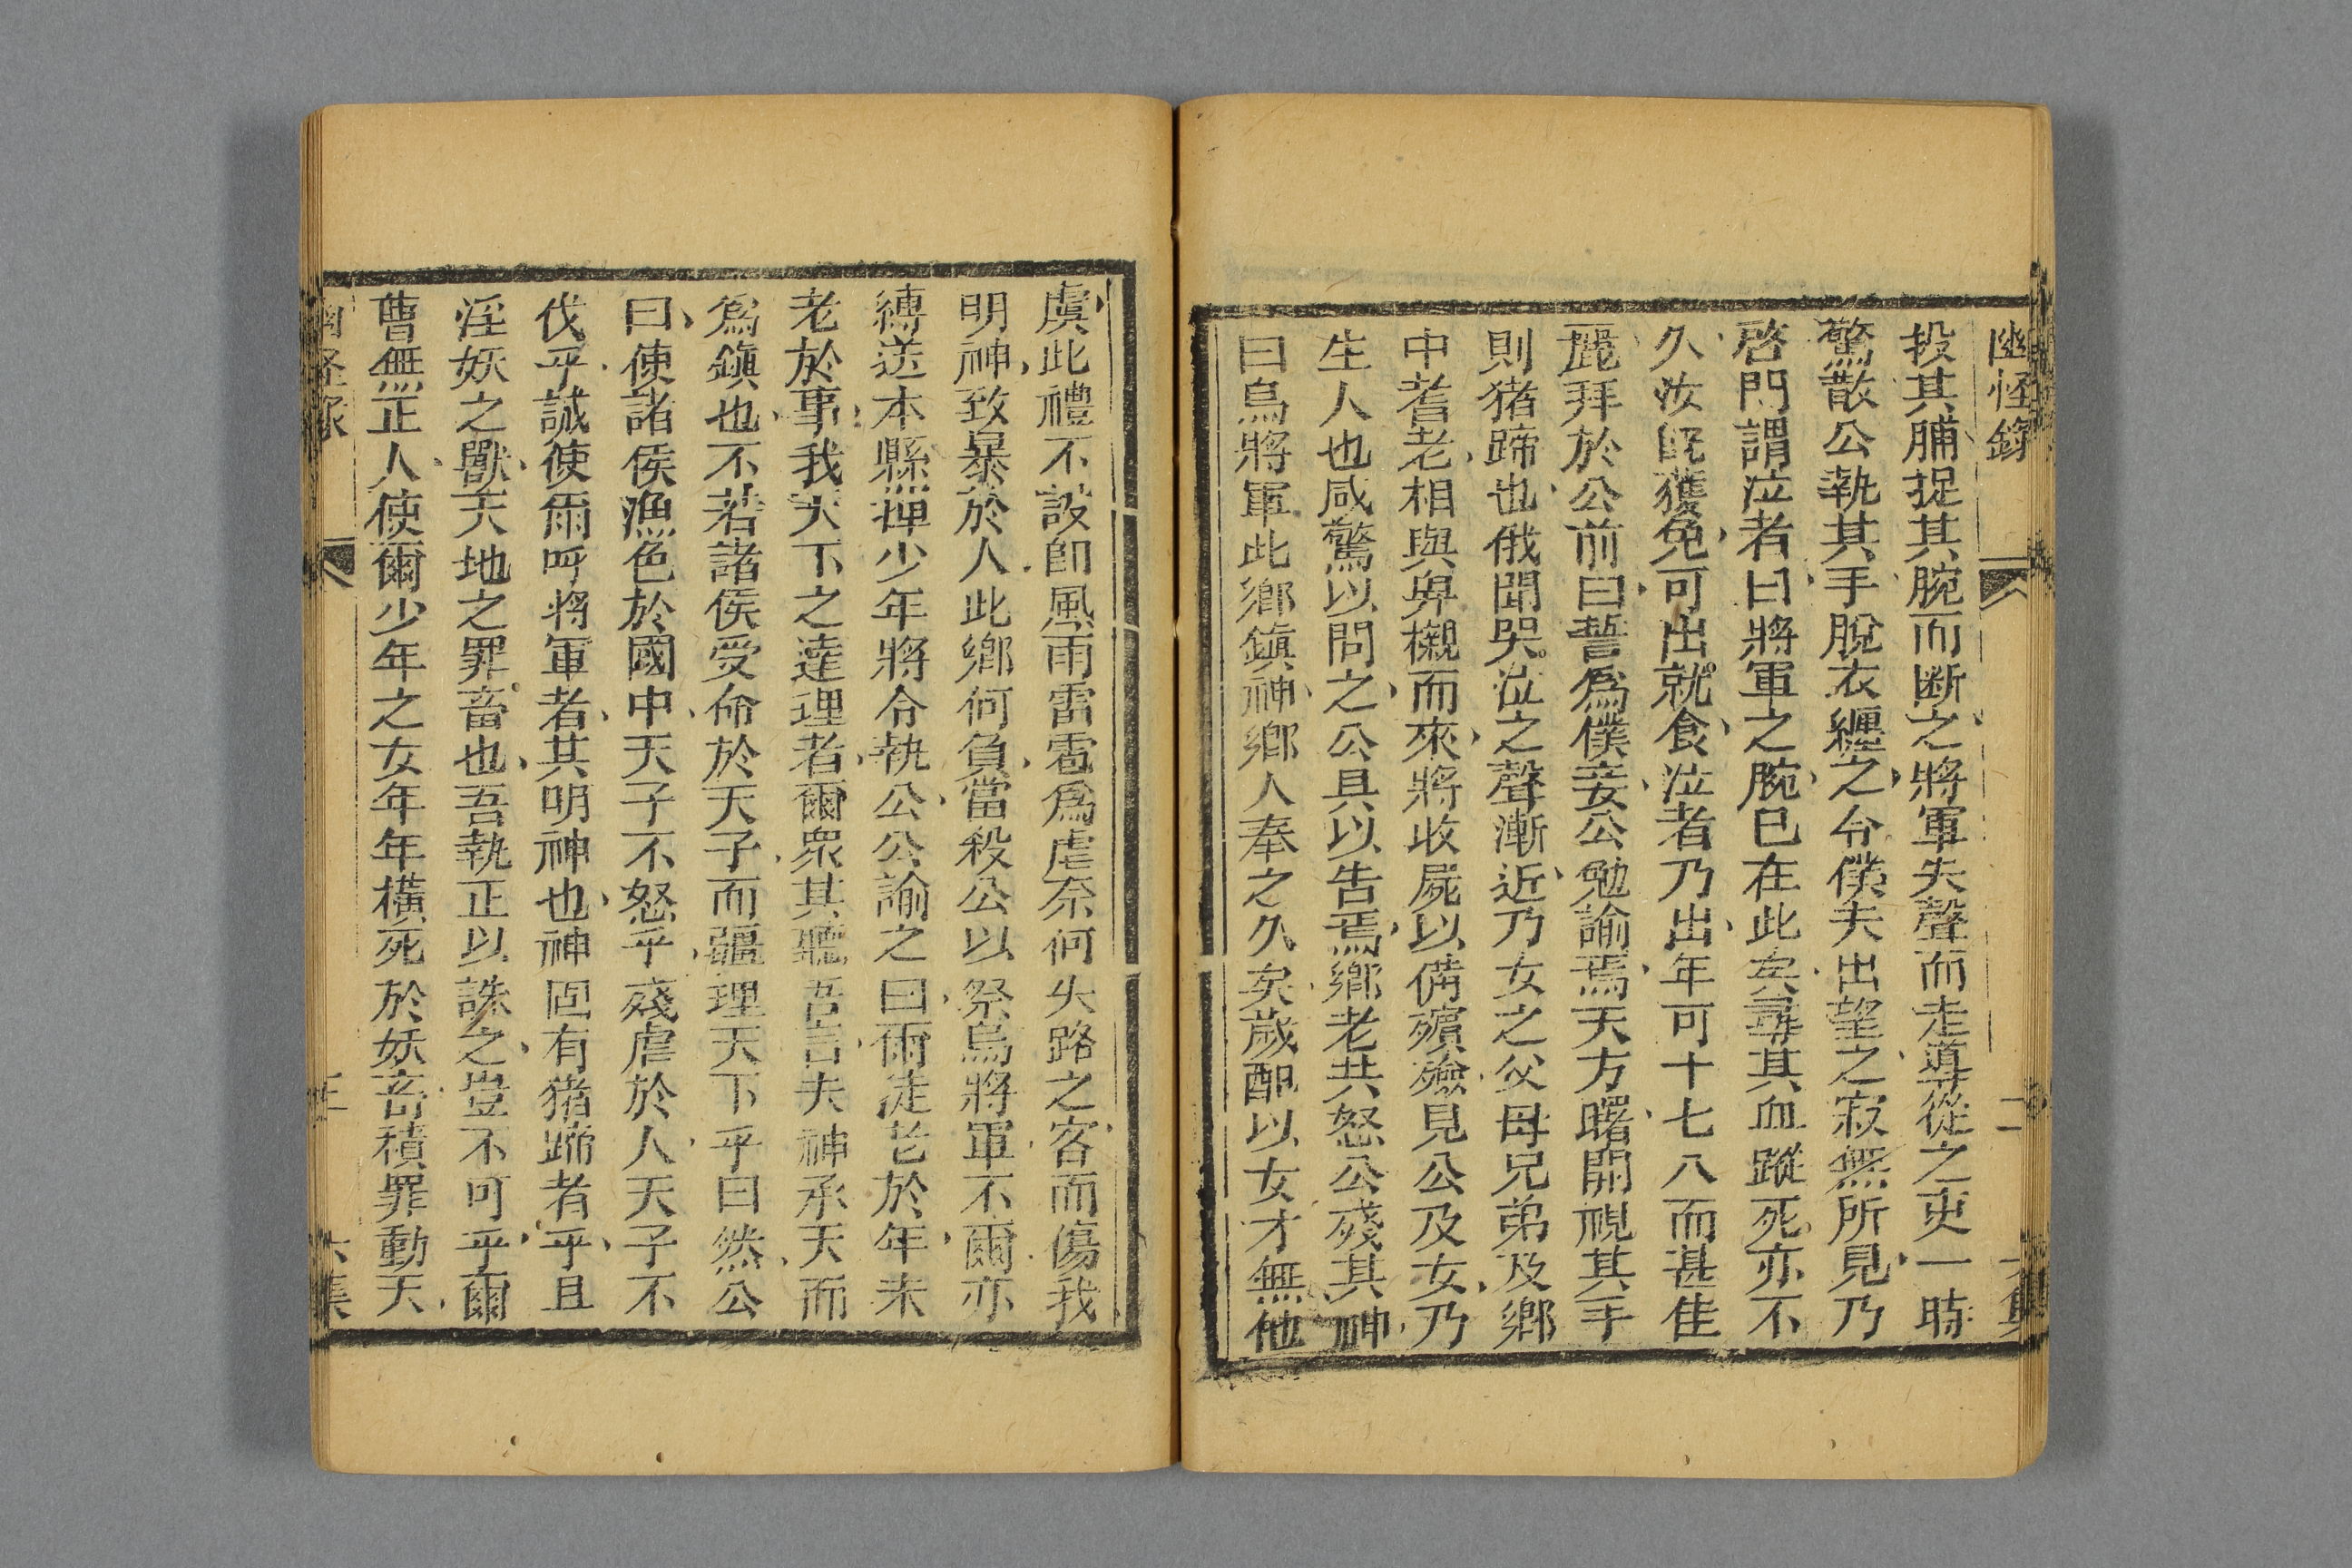 幽怪錄 二
投其脯捉其腕而断之將軍失聲而走導從之吏一時
驚散公執其手脫衣纏之令僕夫出望之寂無所見乃
啓門謂泣者曰將軍之腕已在此矣尋其血蹤死亦不
久汝旣獲免可出就食泣者乃出年可十七八而甚佳
麗拜於公前曰誓爲僕妾公勉諭焉天方曙開視其手
則猪蹄也俄聞哭泣之聲漸近乃女之父母兄弟及鄉
中耆老相與舁櫬而來將收屍以備殯殮見公及女乃
生人也咸驚以問之公具以告焉鄉老共怒公殘其神
曰烏將軍此鄉鎮神鄉人奉之久矣歲配以女才無他
虞此禮不設卽風雨雷雹爲虐奈何失路之客而傷我
明神致暴於人此鄉何負當殺公以祭烏將軍不爾亦
縛送本縣揮少年將令執公公諭之曰爾徒老於年未
老於事我天下之達理者爾衆其聽吾言夫神承天而
爲鎮也不若諸侯受命於天子而疆理天下乎曰然公
曰使諸侯漁色於國中天子不怒乎殘虐於人天子不
伐乎誠使爾呼將軍者其明神也神固有猪蹄者乎且
淫妖之獸天地之罪畜也吾執正以誅之豈不可乎爾
曹無正人使爾少年之女年年橫死於妖畜積罪動天